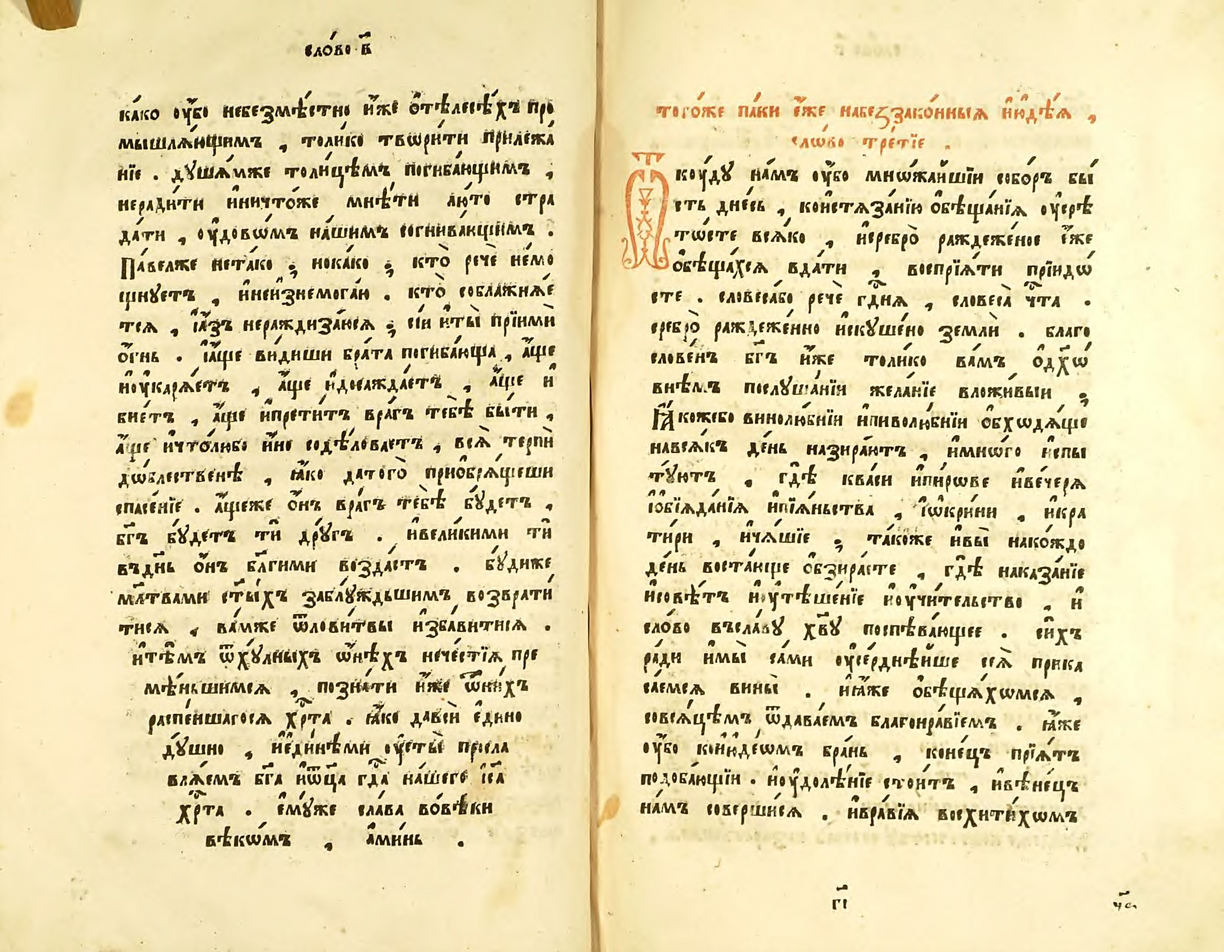 сло́во в҃
ка́ко ᲂу҆́бо небезмѣ́стно и҆́же ѿтѣлесѣ́хъ про
мышлѧ́ющимъ , толи́ко твори́ти прилежа́
нїе . дꙋша́мже толи́цѣмъ погиба́ющимъ ,
неради́ти и҆ничто́же мнѣ́ти лю́то стра
да́ти , ᲂу҆́довѡмъ на́шимъ согнива́ющимъ .
Па́велже нета́ко ; нока́ко ; кто̀ речѐ немо
щнꙋетъ , и҆неизнемога́ю . кто̀ соблажнѧ́е
тсѧ , и҆а҆́зъ неражди́заюсѧ ; сїи и҆ты̀ прїимѝ
о҆́гнь . і҆а҆́ще ви́диши бра́та погиба́юща , а҆́ще
и҆оукарѧ́етъ , а҆́ще и҆досажда́етъ , а҆́ще и҆
бїе́тъ , а҆́ще и҆прети́тъ вра́гъ тебѣ̀ бы́ти ,
а҆́ще и҆что́любо и҆́но содѣ́ловаетъ , всѧ̀ терпѝ
до́блественѣ , ꙗ҆́ко дато́го приобрѧ́щеши
спасе́нїе . а҆́щеже ѻ҆́нъ вра́гъ тебѣ̀ бꙋ́детъ ,
бг҃ъ бꙋ́детъ тѝ дрꙋ́гъ . и҆вели́кими тѝ
въдн҃ь ѻ҆́нъ бл҃ги́ми возда́стъ . бꙋ́диже
мл҃твами ст҃ы́хъ заблꙋ́ждьшимъ возврати́
тисѧ , ва́мже ѿлови́твы и҆зба́витисѧ .
и҆тѣ́мъ ѿхꙋ́льныхъ ѡ҆́нѣхъ нече́стїѧ пре
мѣ́ньшимсѧ , позна́ти и҆́же ѿни́хъ
распе́ншагосѧ хр҃та . ꙗ҆́ко давсѝ є҆ди́но
дꙋ́шно , и҆є҆ди́нѣми ᲂу҆сты̀ просла
влѧ́емъ бг҃а и҆ѻц҃а гд҃а на́шего і҆с҃а
хр҃та . є҆мꙋ́же сла́ва вовѣ́ки
вѣкѡ́мъ , а҆ми́нь .
того́же па́ки є҆́же набеззако́нныѧ и҆ю҆дѣ́ѧ ,
сло́во тре́тїе .
Ѿкоу́дꙋ на́мъ ᲂу҆́бо мно́жайшїи собо́ръ бы́
сть дне́сь , коистѧза́нїю ѻ҆бѣща́нїѧ ᲂу҆срѣ́
тосте всѧ́ко , и҆сребро̀ ражде́женое є҆́же
ѻ҆бѣща́хсѧ вда́ти , воспрїѧ́ти прїидо́
сте . словеса́бо речѐ гд҃нѧ , словеса̀ чт҃а .
сребро̀ ражде́женно и҆скꙋ́шено землѝ . благо
слове́нъ бг҃ъ и҆́же толи́ко ва́мъ ѻ҆дх҃о́
внѣ́мъ послꙋша́нїи жела́нїе вложи́выи ;
Ꙗ҆́кожебо винолю́бнїи и҆пиволю́бнїи ѻ҆бходѧ́ще
навсѧ́къ де́нь назира́ютъ , и҆мно́го и҆спы́
тꙋютъ , гдѣ̀ ква́си и҆пи́рове и҆ве́черѧ
и҆ѻ҆бїѧда́нїѧ и҆пїѧ́ньства , и҆ѡ҆кри́ни , и҆кра
ти́ри , и҆ча́шїе ; та́коже и҆вы̀ нако́ждо
де́нь воста́юще ѻ҆бзира́ете , гдѣ̀ наказа́нїе
и҆совѣ́тъ и҆ᲂу҆тѣше́нїе и҆ᲂу҆чи́тельство , и҆
сло́во въсла́вꙋ хв҃ꙋ поспѣва́ющее . си́хъ
ра́ди и҆мы̀ са́ми ᲂу҆се́рднѣйше сеѧ̀ прика
са́емсѧ вины̀ . и҆ꙗ҆́же ѻ҆бѣща́хомсѧ ,
совсѧ́цѣмъ ѿдава́емъ благонра́вїемъ . ꙗ҆́же
ᲂу҆́бо коию҆де́ѡмъ бра́нь , коне́цъ прїѧ́тъ
подоба́ющїи . и҆ᲂу҆долѣ́нїе стои́тъ , и҆вѣне́цъ
на́мъ соверши́сѧ . и҆бра́вїѧ восхити́хомъ
г҃і